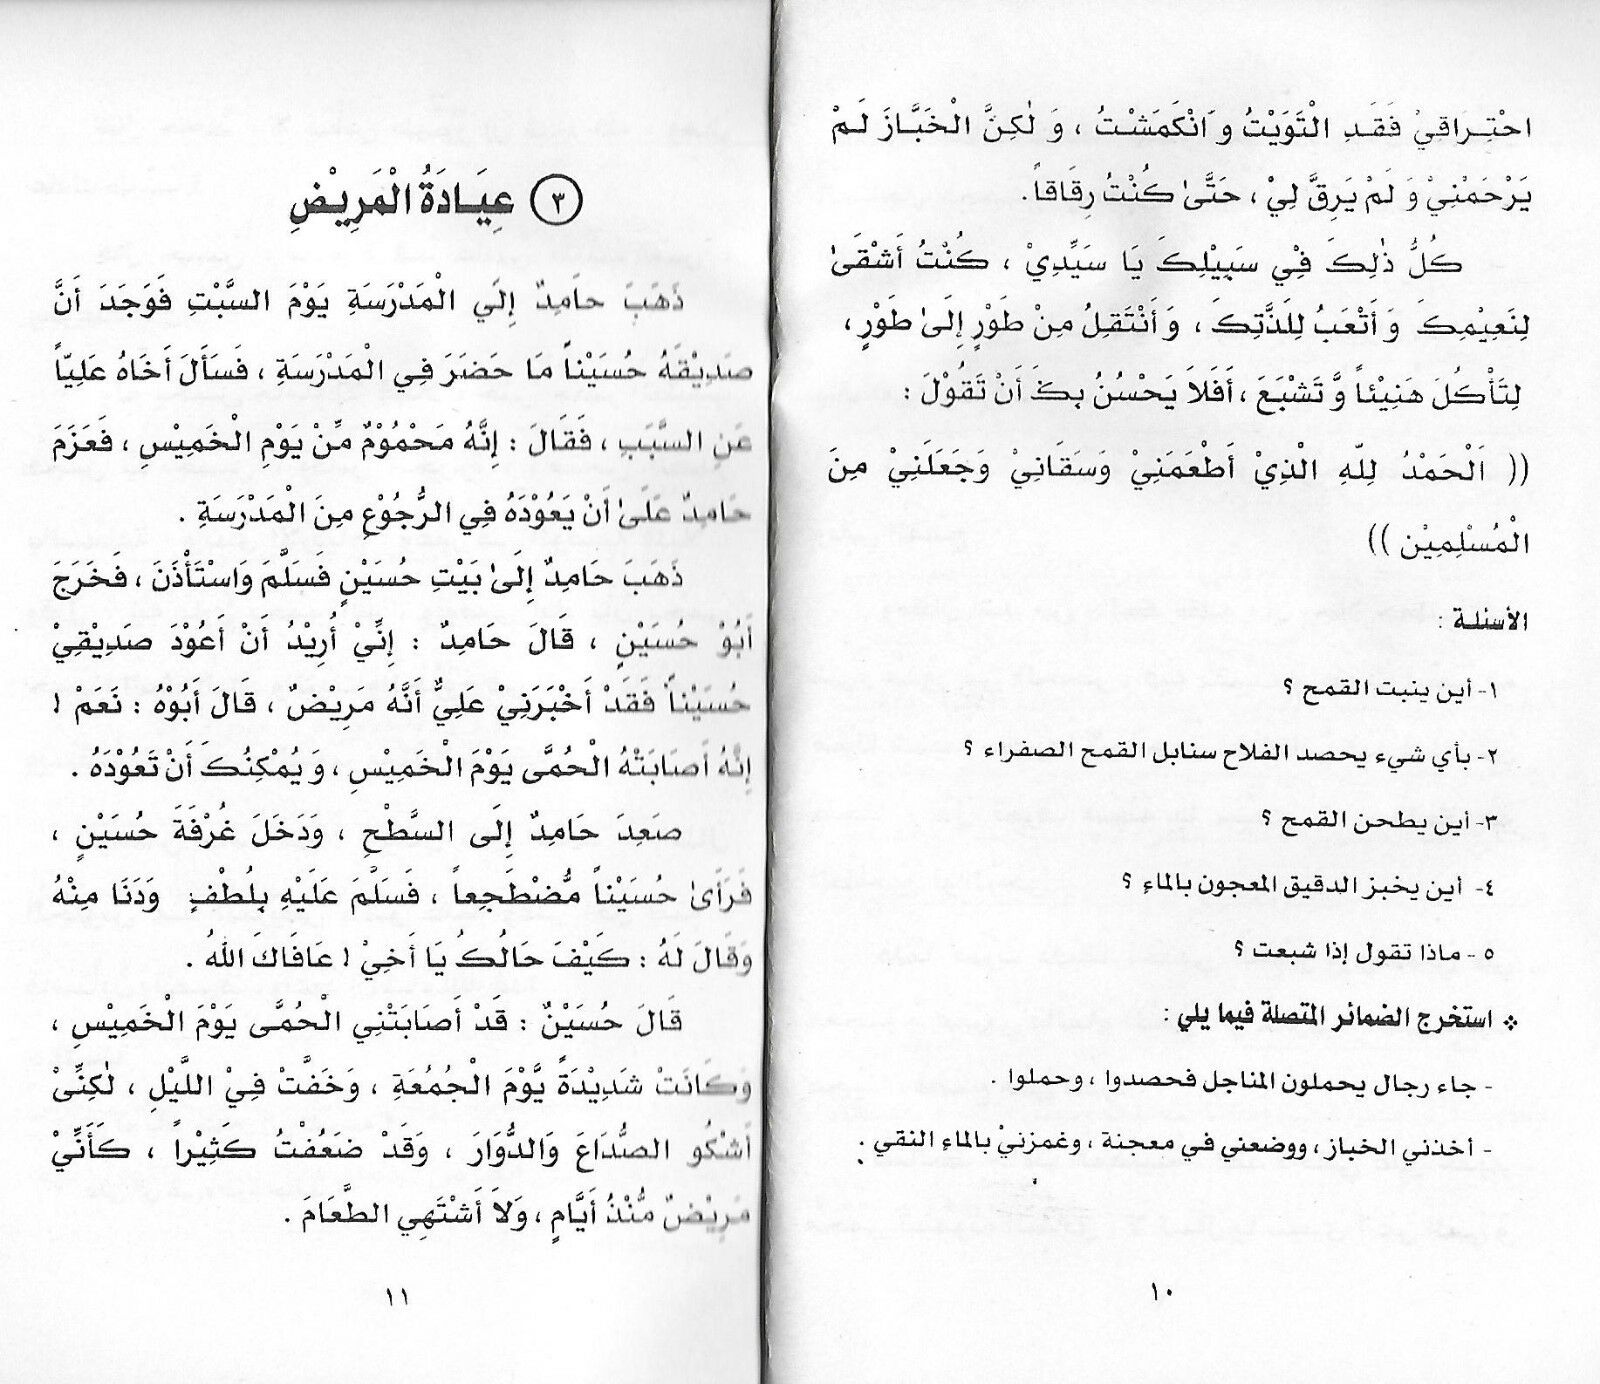 احْتِرَاقِيْ فَقَدِ الْتَوَيْتُ وَانْكَمَشْتُ ، وَ لٰكِنَّ الْخَبَّازَ لَمْ
يَرْحَمْنِيْ وَ لَمْ يَرِقَّ لِيْ ، حَتَّىٰ كُنْتُ رِقَاقاً.
كُلُّ ذٰلِكَ فِيْ سَبِيْلِكَ يَا سَيِّدِيْ ، كُنْتُ أَشْقَىٰ
لِنَعِيْمِكَ وَ أَتْعَبُ لِلَذَّتِكَ ، وَ أَنْتَقِلُ مِنْ طَوْرٍ إِلَىٰ طَوْرٍ ،
لِتَأْكُلَ هَنِيْئاً وَّ تَشْبَعَ ، أَفَلاَ يَحْسُنُ بِكَ أَنْ تَقُوْلَ :
(( اَلْحَمْدُ لِلّٰهِ الَّذِيْ أَطْعَمَنِيْ وَسَقَانِيْ وَجَعَلَنِيْ مِنَ
الْمُسْلِمِيْنَ ))
الأسئلة :
١- أين ينبت القمح ؟
٢- بأي شيء يحصد الفلاح سنابل القمح الصفراء ؟
٣- أين يطحن القمح ؟
٤- أين يخبز الدقيق المعجون بالماء ؟
٥ - ماذا تقول إذا شبعت ؟
❖ استخرج الضمائر المتصلة فيما يلي :
- جاء رجال يحملون المناجل فحصدوا ، وحملوا .
- أخذني الخباز ، ووضعني في معجنة ، وغمزنيْ بالماء النقي .
١٠
٣ عِيَادَةُ الْمَرِيْضِ
ذَهَبَ حَامِدٌ إِلَي الْمَدْرَسَةِ يَوْمَ السَّبْتِ فَوَجَدَ أَنَّ
صَدِيْقَهُ حُسَيْناً مَا حَضَرَ فِي الْمَدْرَسَةِ ، فَسَأَلَ أَخَاهُ عَلِيّاً
عَنِ السَّبَبِ ، فَقَالَ : إِنَّهُ مَحْمُوْمٌ مِّنْ يَوْمِ الْخَمِيْسِ ، فَعَزَمَ
حَامِدٌ عَلَىٰ أَنْ يَعُوْدَهُ فِي الرُّجُوْعِ مِنَ الْمَدْرَسَةِ .
ذَهَبَ حَامِدٌ إِلَىٰ بَيْتِ حُسَيْنٍ فَسَلَّمَ وَاسْتَأْذَنَ ، فَخَرَجَ
أَبُوْ حُسَيْنٍ ، قَالَ حَامِدٌ : إِنِّيْ أُرِيْدُ أَنْ أَعُوْدَ صَدِيْقِيْ
حُسَيْناً فَقَدْ أَخْبَرَنِيْ عَلِيٌّ أَنَّهُ مَرِيْضٌ ، قَالَ أَبُوْهُ : نَعَمْ !
إِنَّهُ أَصَابَتْهُ الْحُمَّى يَوْمَ الْخَمِيْسِ ، وَ يُمْكِنُكَ أَنْ تَعُوْدَهُ .
صَعِدَ حَامِدٌ إِلَى السَّطْحِ ، وَدَخَلَ غُرْفَةَ حُسَيْنٍ ،
فَرَأَىٰ حُسَيْناً مُّضْطَجِعاً ، فَسَلَّمَ عَلَيْهِ بِلُطْفٍ وَدَنَا مِنْهُ
وَقَالَ لَهُ : كَيْفَ حَالُكَ يَا أَخِيْ ! عَافَاكَ اللهُ .
قَالَ حُسَيْنٌ : قَدْ أَصَابَتْنِي الْحُمَّى يَوْمَ الْخَمِيْسِ ،
وَكَانَتْ شَدِيْدَةً يَّوْمَ الْجُمُعَةِ ، وَخَفَّتْ فِيْ اللَّيْلِ ، لٰكِنِّيْ
أَشْكُو الصُّدَاعَ وَالدُّوَارَ ، وَقَدْ ضَعُفْتُ كَثِيْراً ، كَأَنِّيْ
مَرِيْضٌ مُّنْذُ أَيَّامٍ ، وَلاَ أَشْتَهِي الطَّعَامَ .
١١